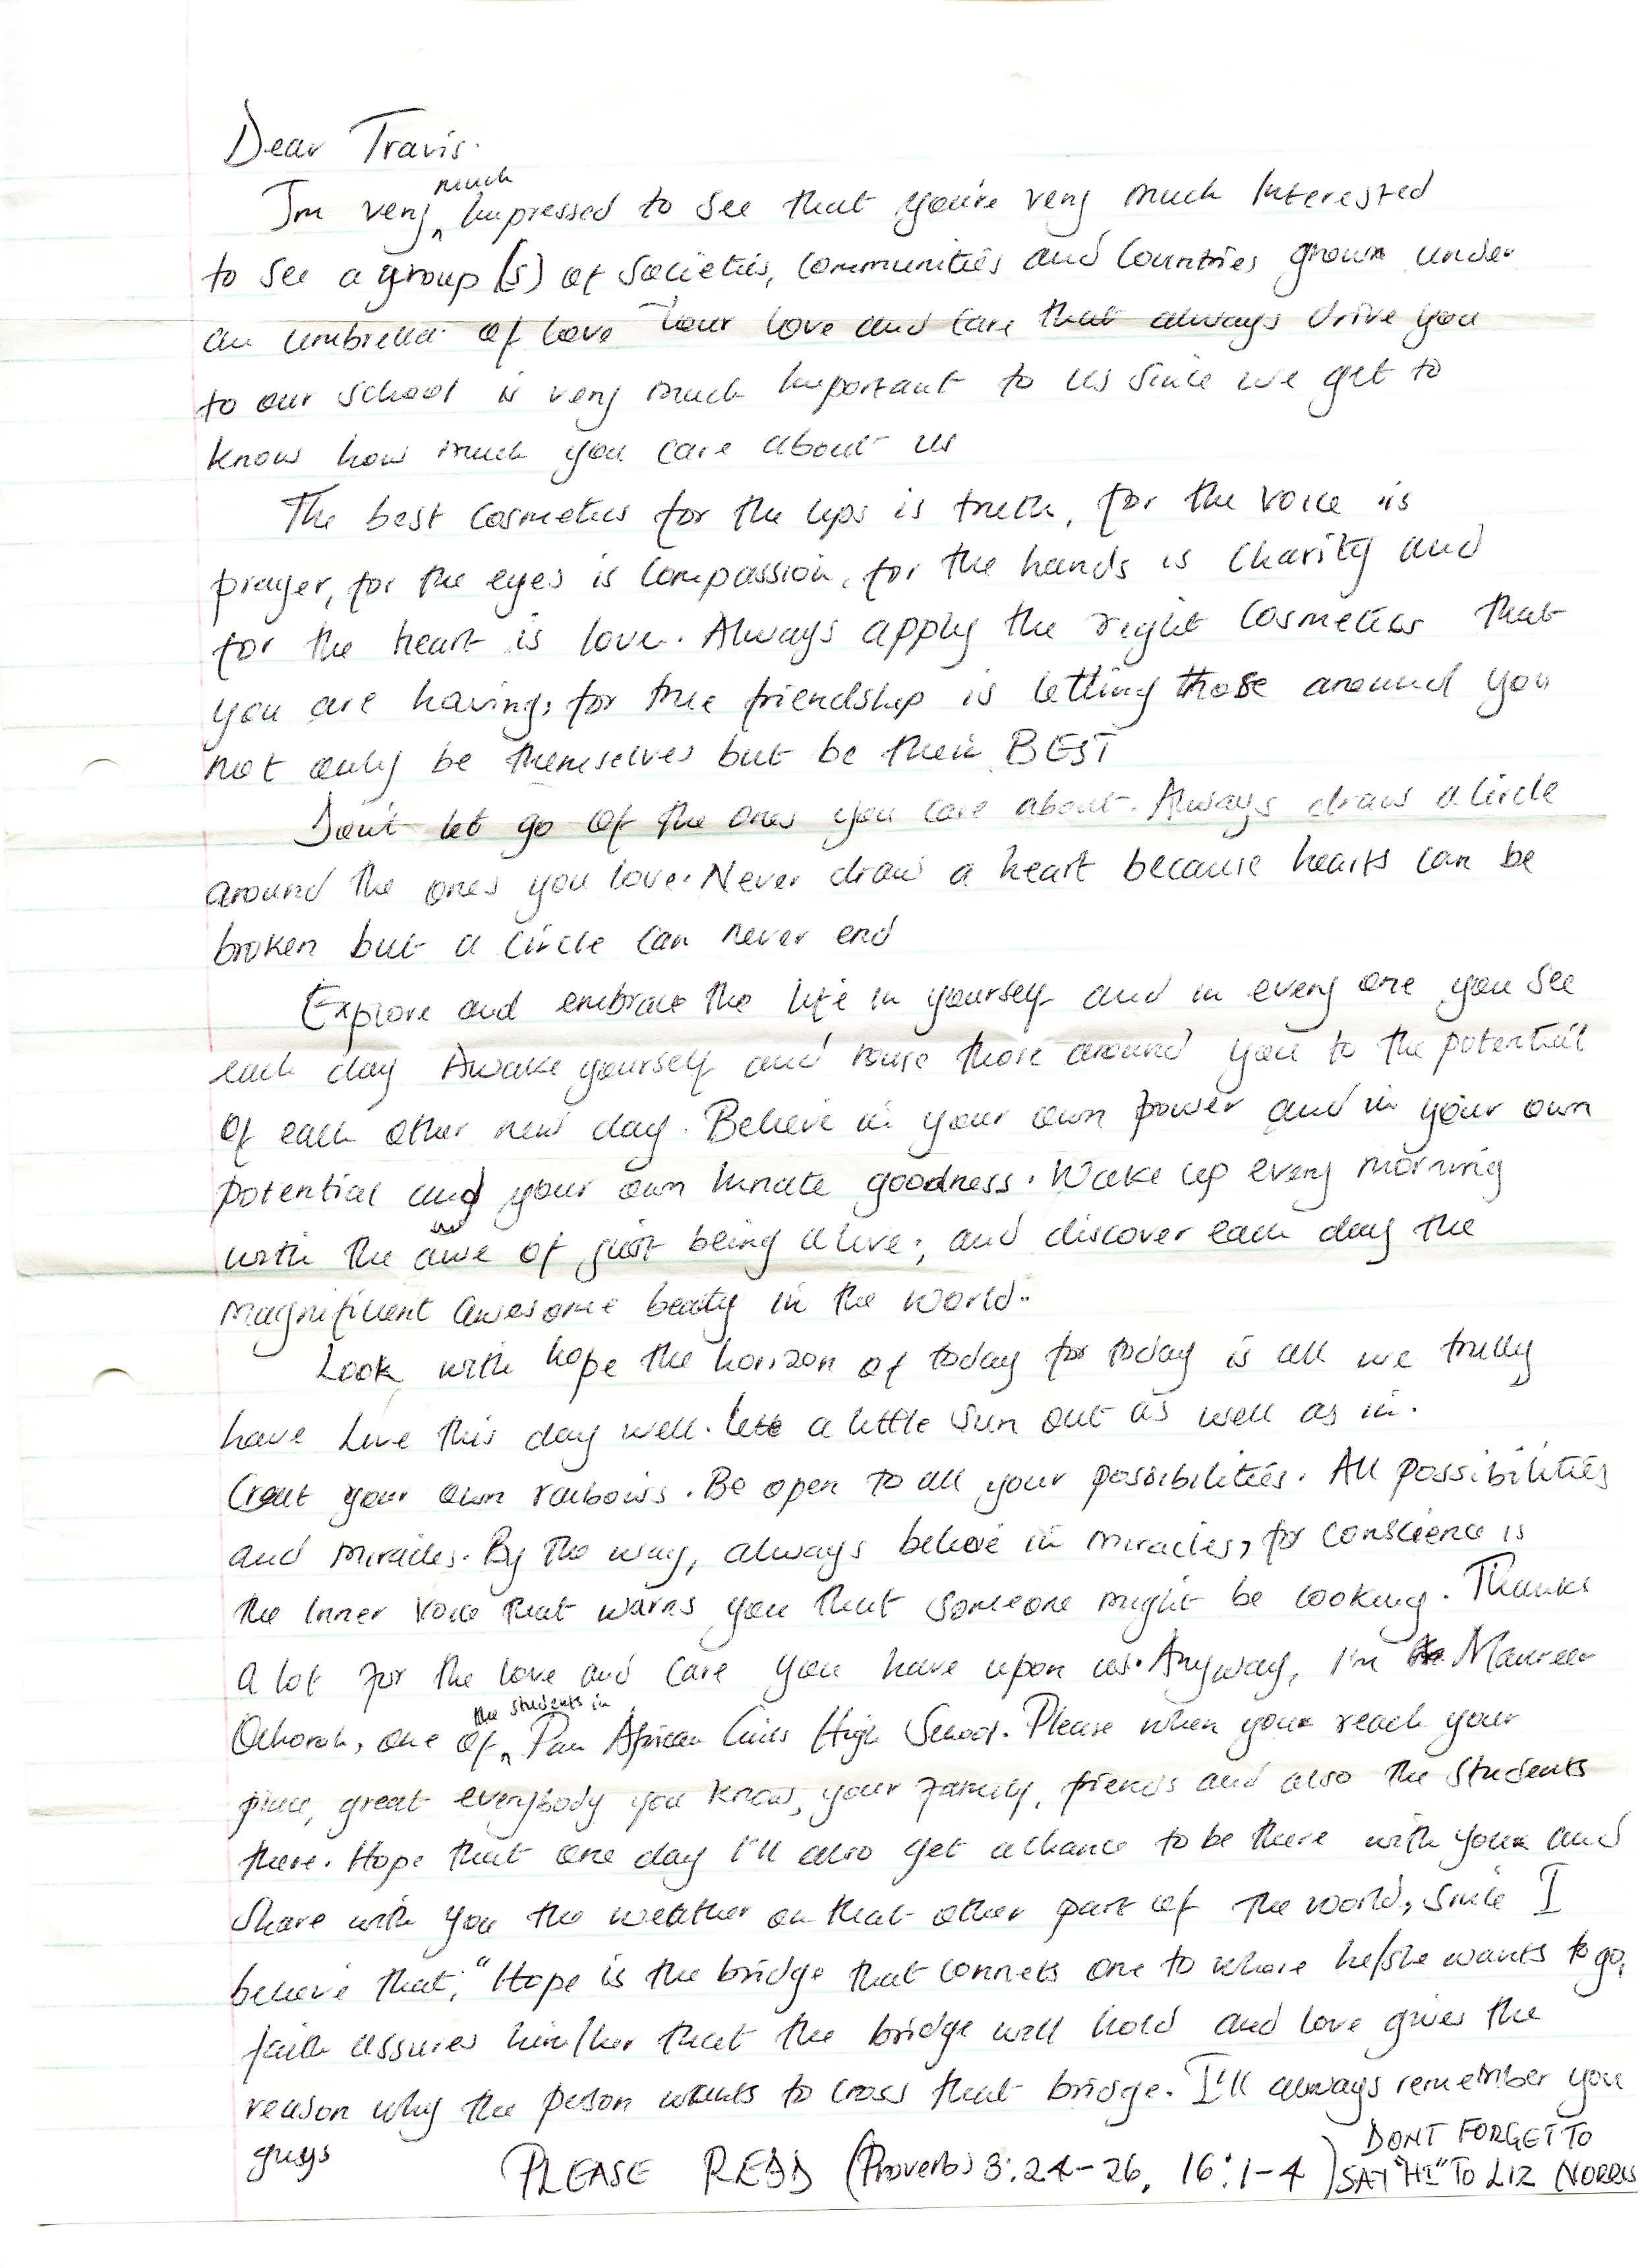 Dear Travis.
I'm very much impressed to see that you're very much interested
to see a group (s) of societies, communities and countries grown under
an umbrella of love Your love and care that always drive you
to our school is very much important to us since we get to
know how much you care about us
The best cosmetics for the lips is truth, for the voice is
prayer, for the eyes is compassion, for the hands is charity and
for the heart is love. Always apply the right cosmetics that
you are having, for true friendship is letting those around you
not only be themselves but be their BEST
Don't let go of the ones you care about. Always draw a circle
around the ones you love. Never draw a heart because hearts can be
broken but a circle can never end
Explore and embrace the life in yourself and in every one you see
each day Awake yourself and rouse those around you to the potential
of each other new day. Believe in your own power and in your own
potential and your own innate goodness. Wake up every morning
with the awe of just being alive; and discover each day the
magnificent awesome beauty in the world..
Look with hope the horizon of today for today is all we trully
have Live this day well. Let a little sun out as well as in.
Creat your own raibows. Be open to all your possibilities. All possibilities
and miracles. By the way, always believe in miracles, for conscience is
the inner voice that warns you that someone might be looking. Thanks
a lot for the love and care you have upon us. Anyway, I'm Maureen
Ochoroh, one of the students in Pan African Girls High School. Please when you reach your
place, great everybody you know, your family, friends and also the students
there. Hope that one day I'll also get a chance to be there with you and
share with you the weather on that other part of the world, since I
believe that; "Hope is the bridge that connets one to where he/she wants to go,
faith assures him/her that the bridge will hold and love gives the
reason why the person wants to cross that bridge. I'll always remember you
guys
PLEASE READ (Proverbs 3:24-26, 16:1-4)
DONT FORGET TO
SAY "HI" TO LIZ NORRIS